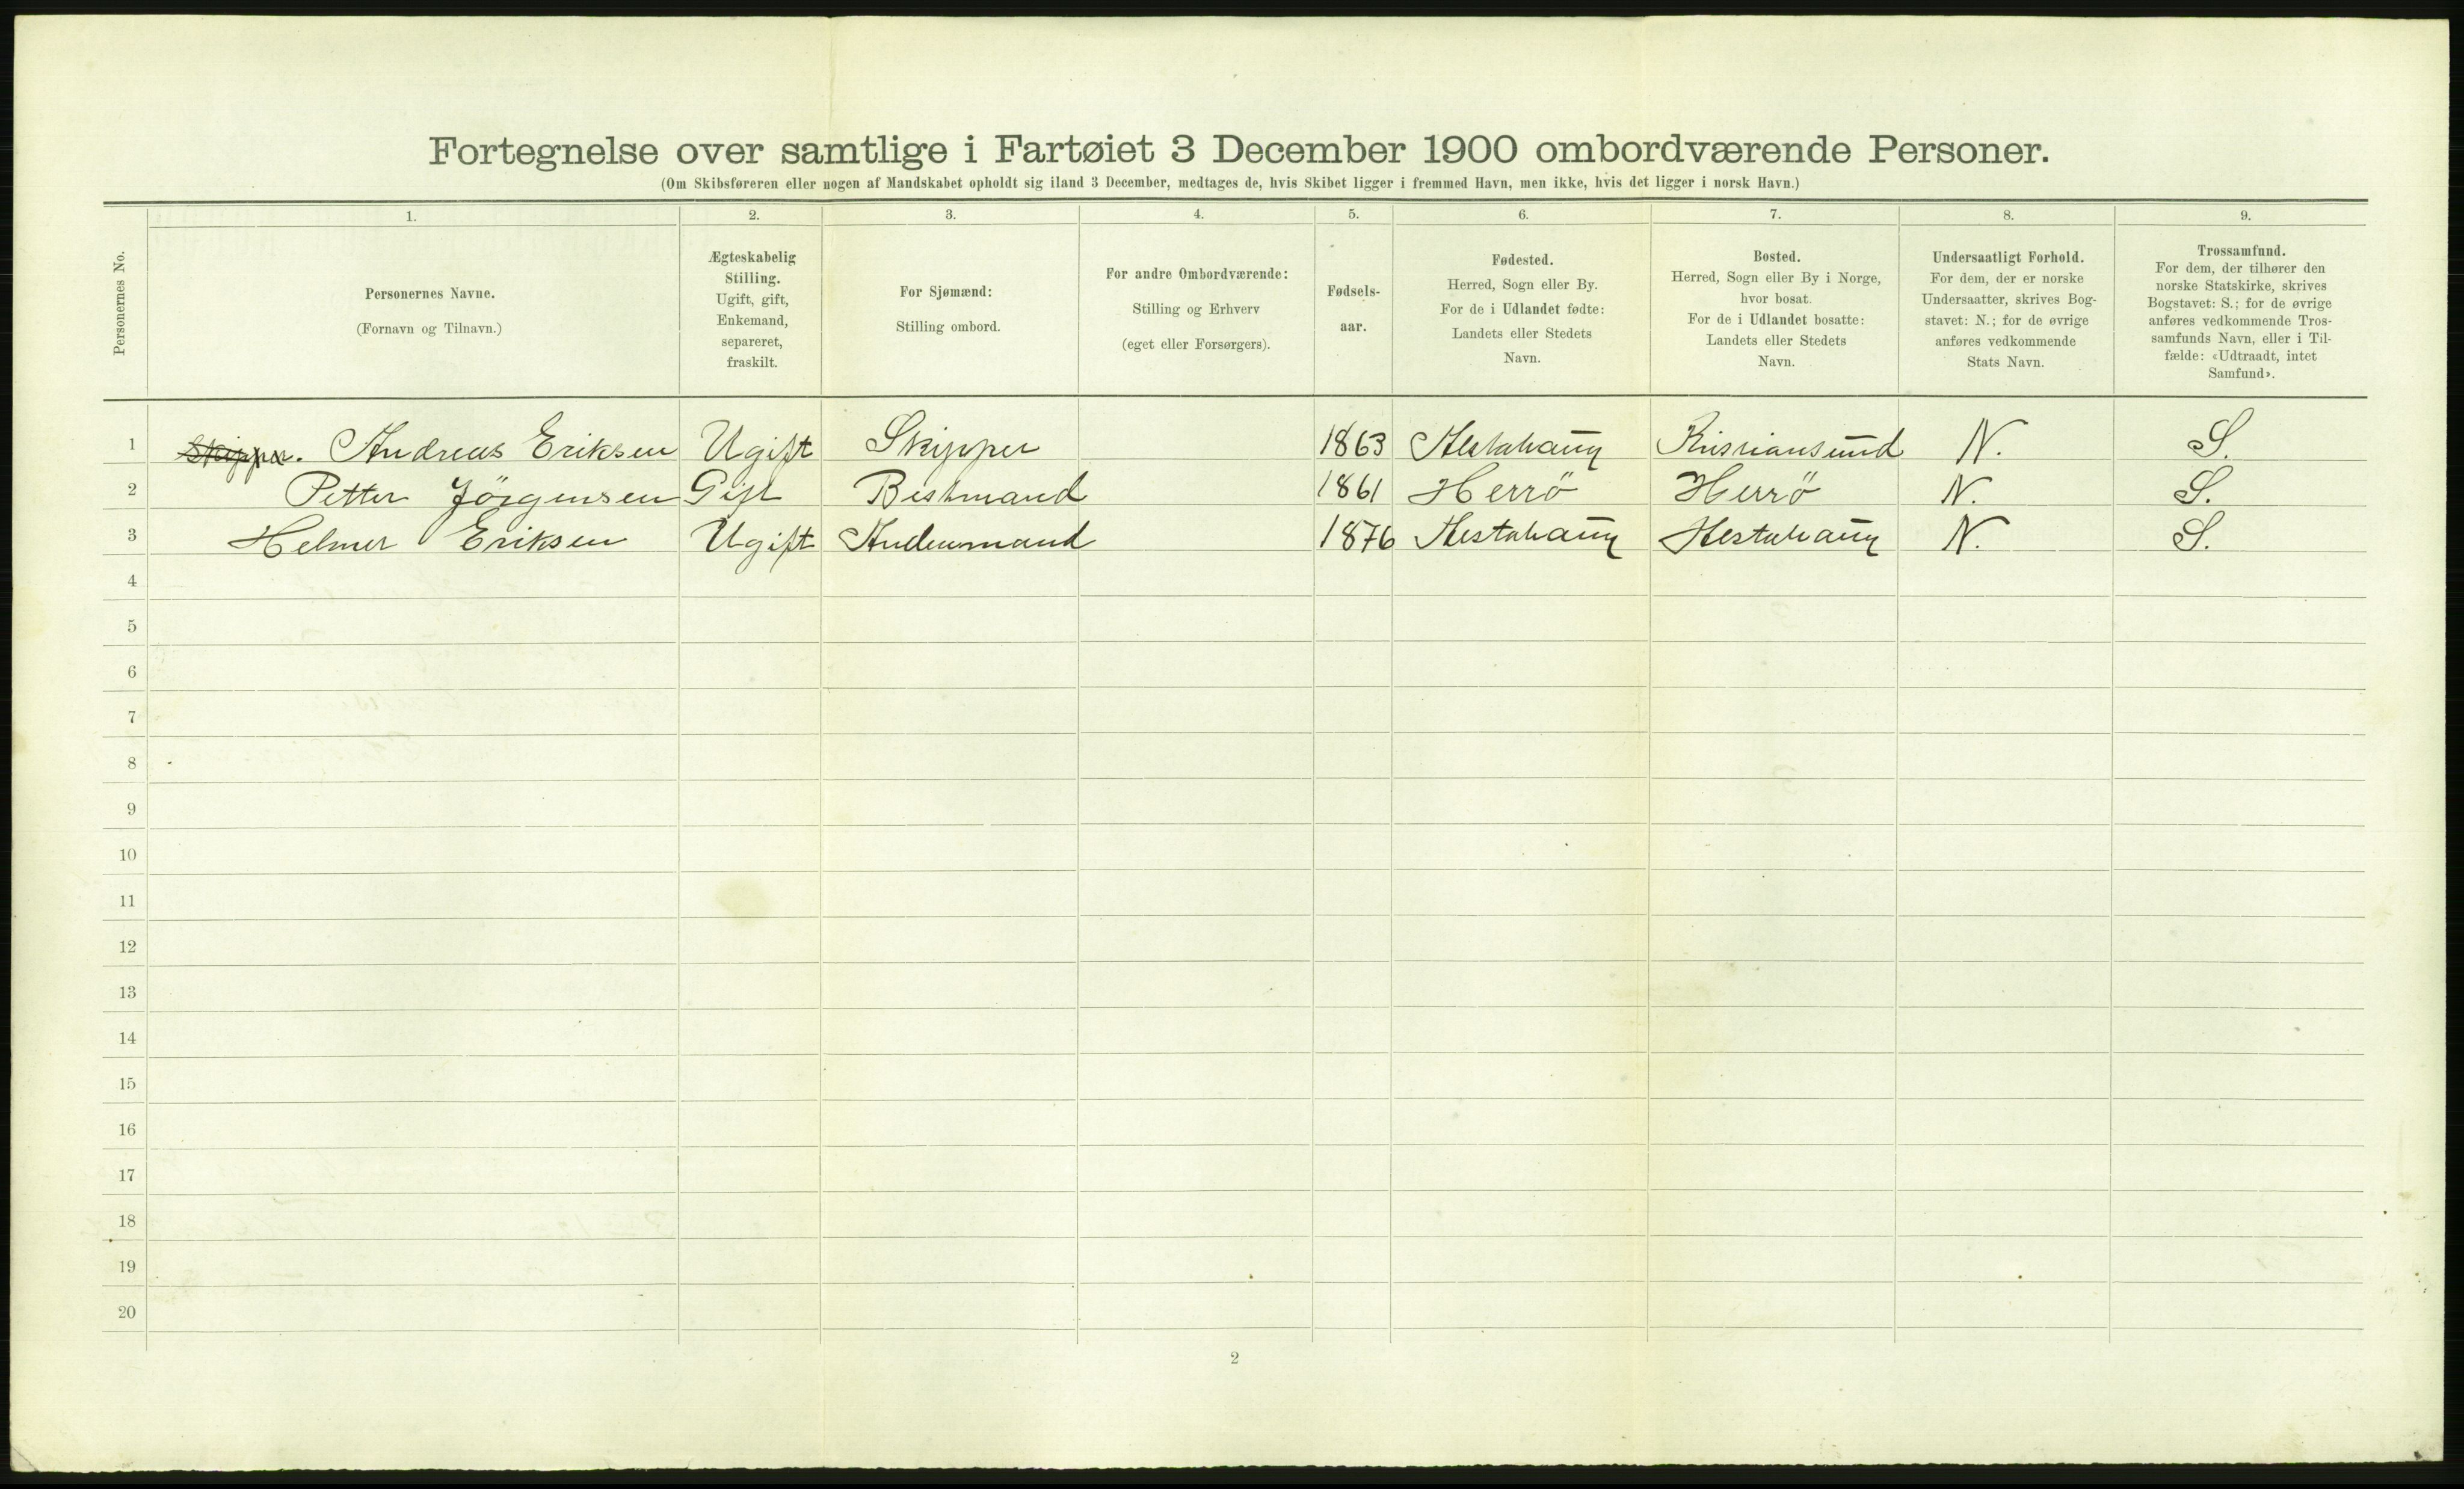 Fortegnelse over samtlige i Fartøiet 3 December 1900 ombordværende Personer.
(Om Skibsføreren eller nogen af Mandskabet opholdt sig iland 3 December, medtages de, hvis Skibet ligger i fremmed Havn, men ikke, hvis det ligger i norsk Havn.)
Personernes No.
1.
Personernes Navne.
(Fornavn og Tilnavn.)
2.
Ægteskabelig
Stilling.
Ugift, gift,
Enkemand,
separeret,
fraskilt.
3.
For Sjømænd:
Stilling ombord.
4.
For andre Ombordværende:
Stilling og Erhverv
(eget eller Forsørgers).
5.
Fødsels-
aar.
6.
Fødested.
Herred, Sogn eller By.
For de i Udlandet fødte:
Landets eller Stedets
Navn.
7.
Bosted.
Herred, Sogn eller By i Norge,
hvor bosat.
For de i Udlandet bosatte:
Landets eller Stedets
Navn.
8.
Undersaatligt Forhold.
For dem, der er norske
Undersaatter, skrives Bog-
stavet: N.; for de øvrige
anføres vedkommende
Stats Navn.
9.
Trossamfund.
For dem, der tilhører den
norske Statskirke, skrives
Bogstavet: S.; for de øvrige
anføres vedkommende Tros-
samfunds Navn, eller i Til-
fælde: «Udtraadt, intet
Samfund».
1 Skipper. Andreas Eriksen Ugift Skipper 1863 Alstahaug Kristiansund N. S.
2 Petter Jörgensen Gift Bestmand 1861 Herrö Herrö N. S.
3 Helmer Eriksen Ugift 1876 Alstahaug Alstahaug N. S.
4
5
6
7
8
9
10
11
12
13
14
15
16
17
18
19
20
2